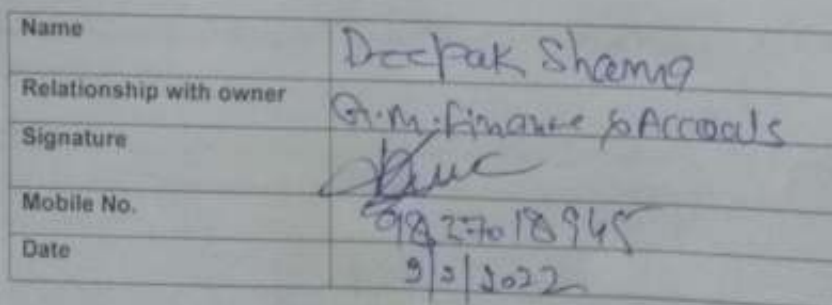 Name Deepak Sharma
Relationship with owner G.M. Finance & Accounts
Signature
Mobile No. 9827018945
Date 9/3/2022